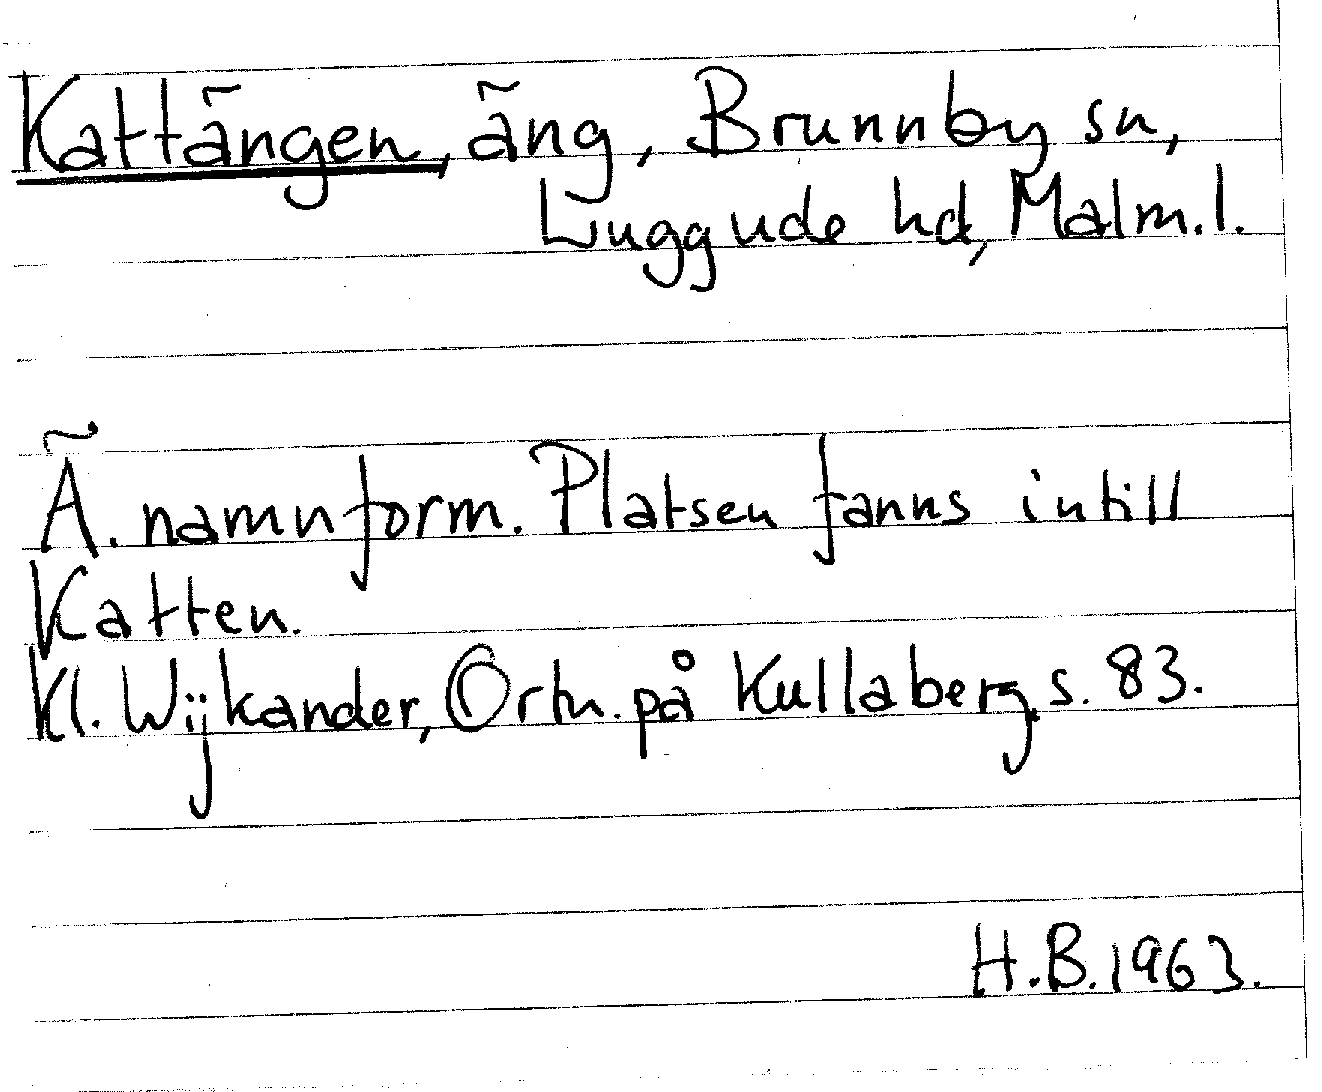 Kattängen, äng, Brunnby sn,
Luggude hd, Malm. l.
Ä. namnform. Platsen fanns intill
Katten.
Kl. Wijkander, Ortn. på Kullaberg, s. 83.
H.B. 1963.